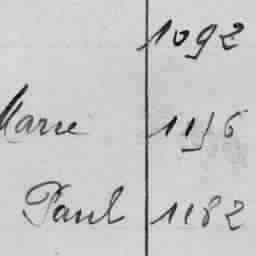 1092
Marie 1156
Paul 1182